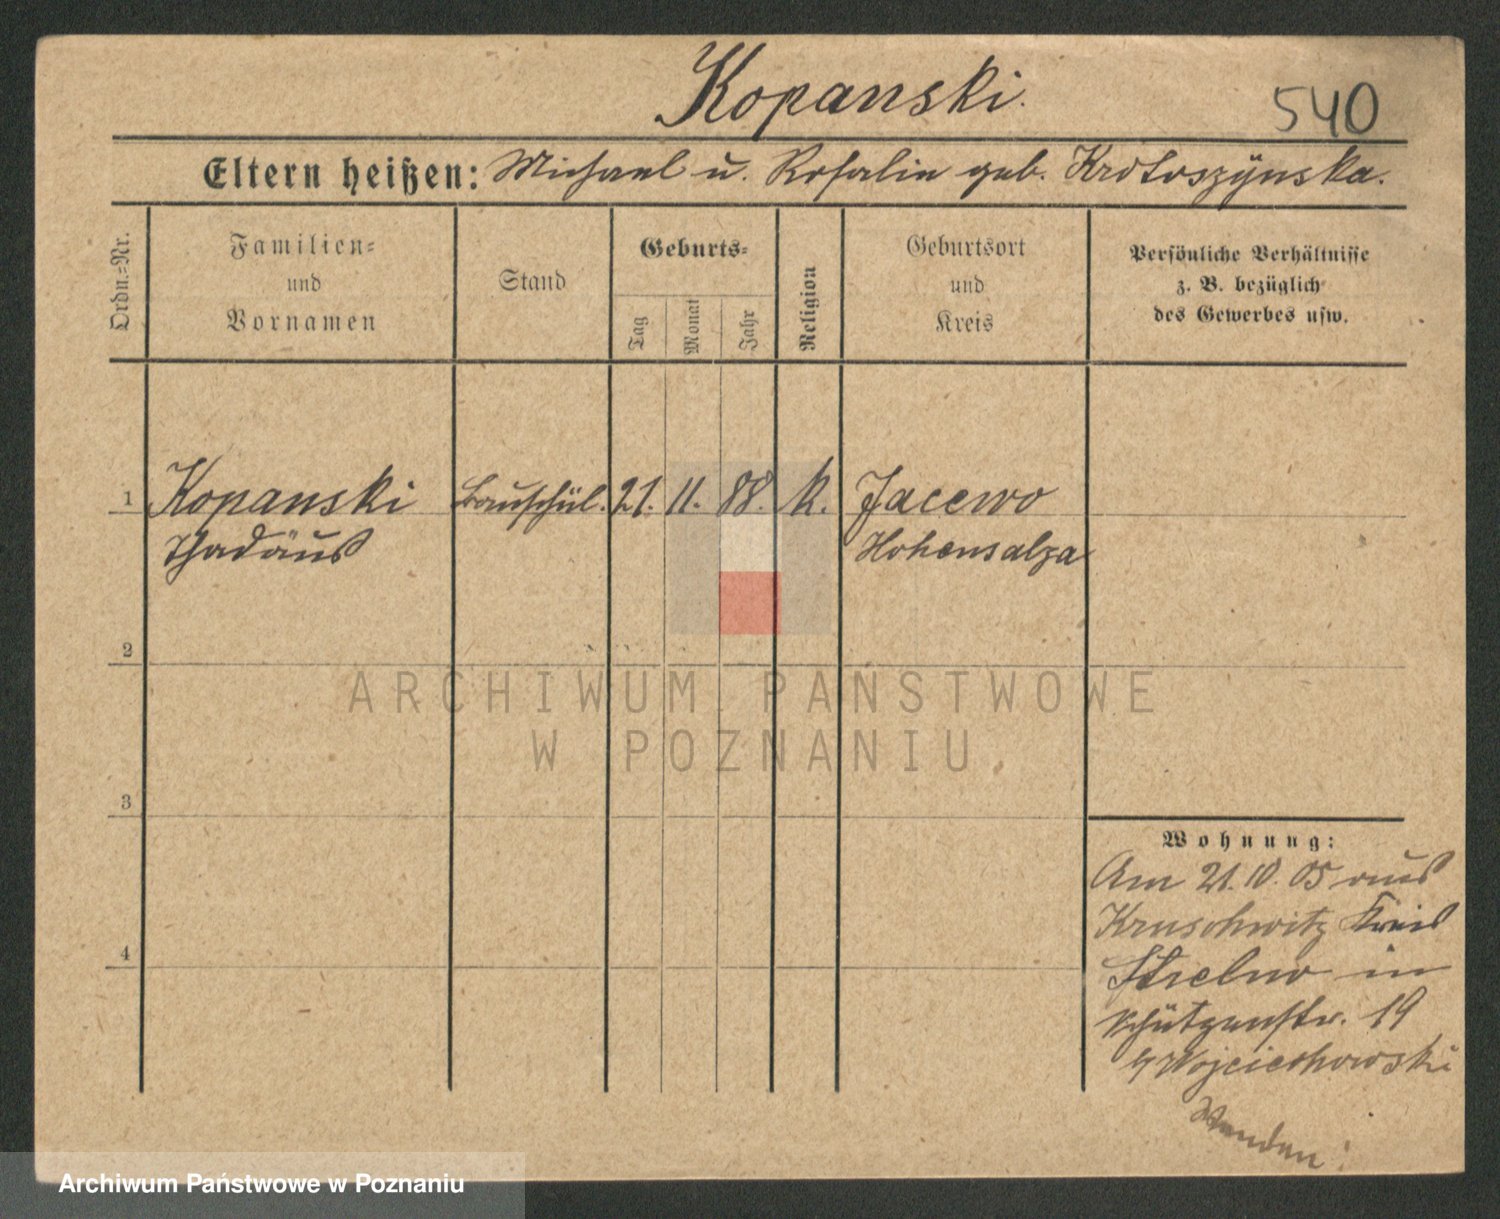 Kopanski.
540
Eltern heißen: Michael u. Rosalie geb. Krotoszÿnska.
Ordn.-Nr.
Familien-
und
Vornamen
Stand
Geburts-
Tag
Monat
Jahr
Religion
Geburtsort
und
Kreis
Persönliche Verhältnisse
z. B. bezüglich
des Gewerbes usw.
1 Kopanski Bauschül. 21. 11. 88. k. Jacewo
Thadäus Hohensalza
2
3
4
Wohnung:
Am 21.10.05 aus
Kruschwitz Kreis
Strelno in
Schützenstr. 19
b/ Wojciechowski
Wenden!
ARCHIWUM PAŃSTWOWE
W POZNANIU
Archiwum Państwowe w Poznaniu